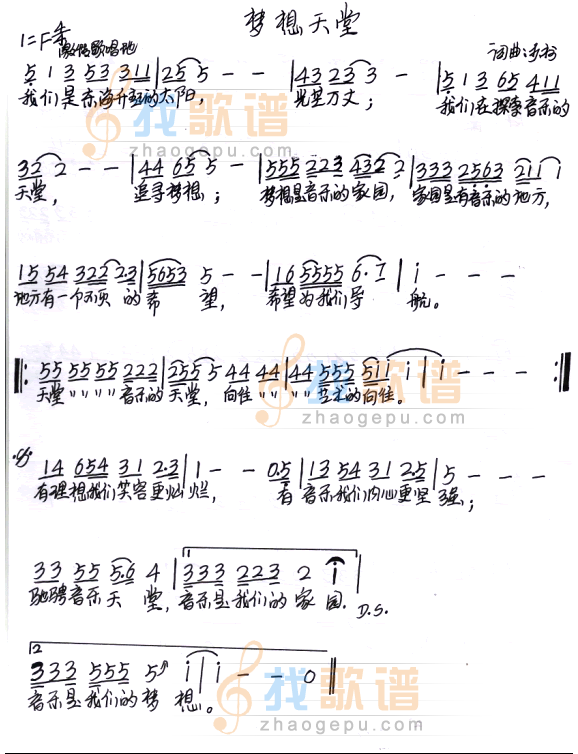 梦想天堂
1=F 4/4
激情歌唱地
词曲:
5 1 3 53 311 | 25 5 - - | 43 23 3 - | 5 1 3 65 411
我们是东海升起的太阳, 光芒万丈; 我们在探索音乐的
32 2 - - | 44 65 5 - | 555 223 432 2 | 333 2563 211 i
天堂, 追寻梦想; 梦想是音乐的家园, 家园是有音乐的地方,
15 54 322 23 | 5653 5 - - | 16 5555 6· i | i - - -
地方有一个不灭的希望, 希望为我们导航。
||: 55 55 55 222 | 255 5 44 44 | 44 555 5ii i | i - - - :||
天堂 〃〃〃〃 音乐的天堂, 向往 〃〃 〃〃 艺术的向往。
14 654 31 2·3 | 1 - - 0.5 | 13 54 31 2.5 | 5 - - -
有理想我们笑容更灿烂, 有音乐我们内心更坚强;
33 55 5.6 4 | 333 223 2 i |
驰骋音乐天堂, 音乐是我们的家园. D.S.
333 555 5 i | i - - 0 ||
音乐是我们的梦想。
找歌谱
zhaogepu.com
找歌谱
zhaogepu.com
找歌谱
zhaogepu.com